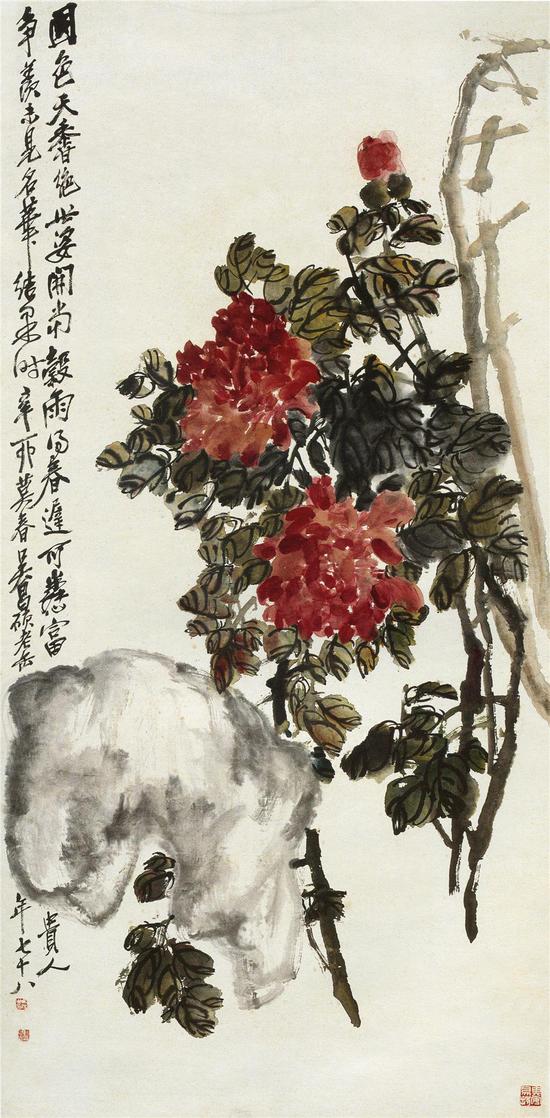 國色天香絕世姿開尚穀雨得春遲可憐富貴人
爭羨未見名華結果時辛酉莫春吳昌碩老缶年七十八